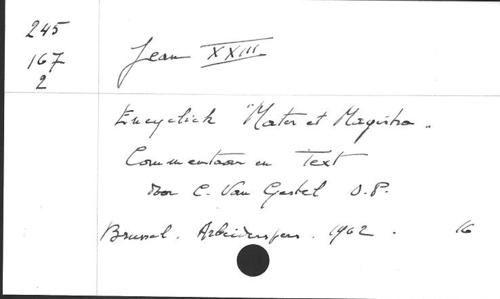 245
167
2
Jean XXIII
Encycliek "Mater et Magistra.
Commentaar en Text
door C. Van Gestel O.P.
Brussel. Arbeiderspers. 1962. 16